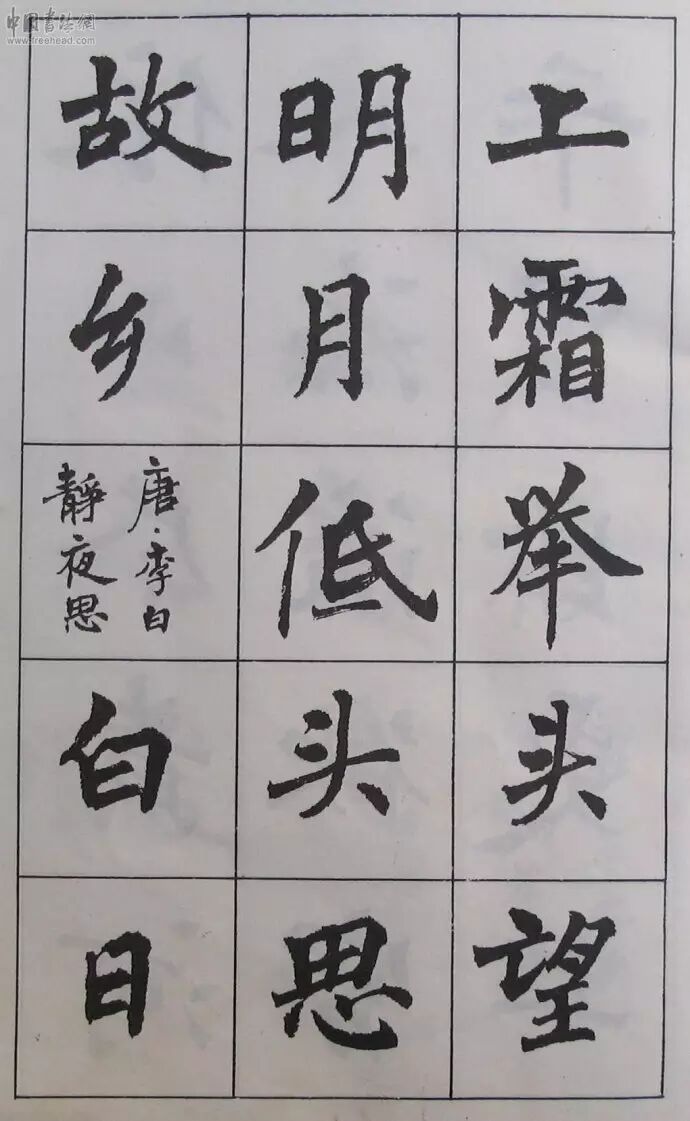 中国书法網
www.freehead.com
上霜举头望
明月低头思
故乡
唐·李白
静夜思
白日